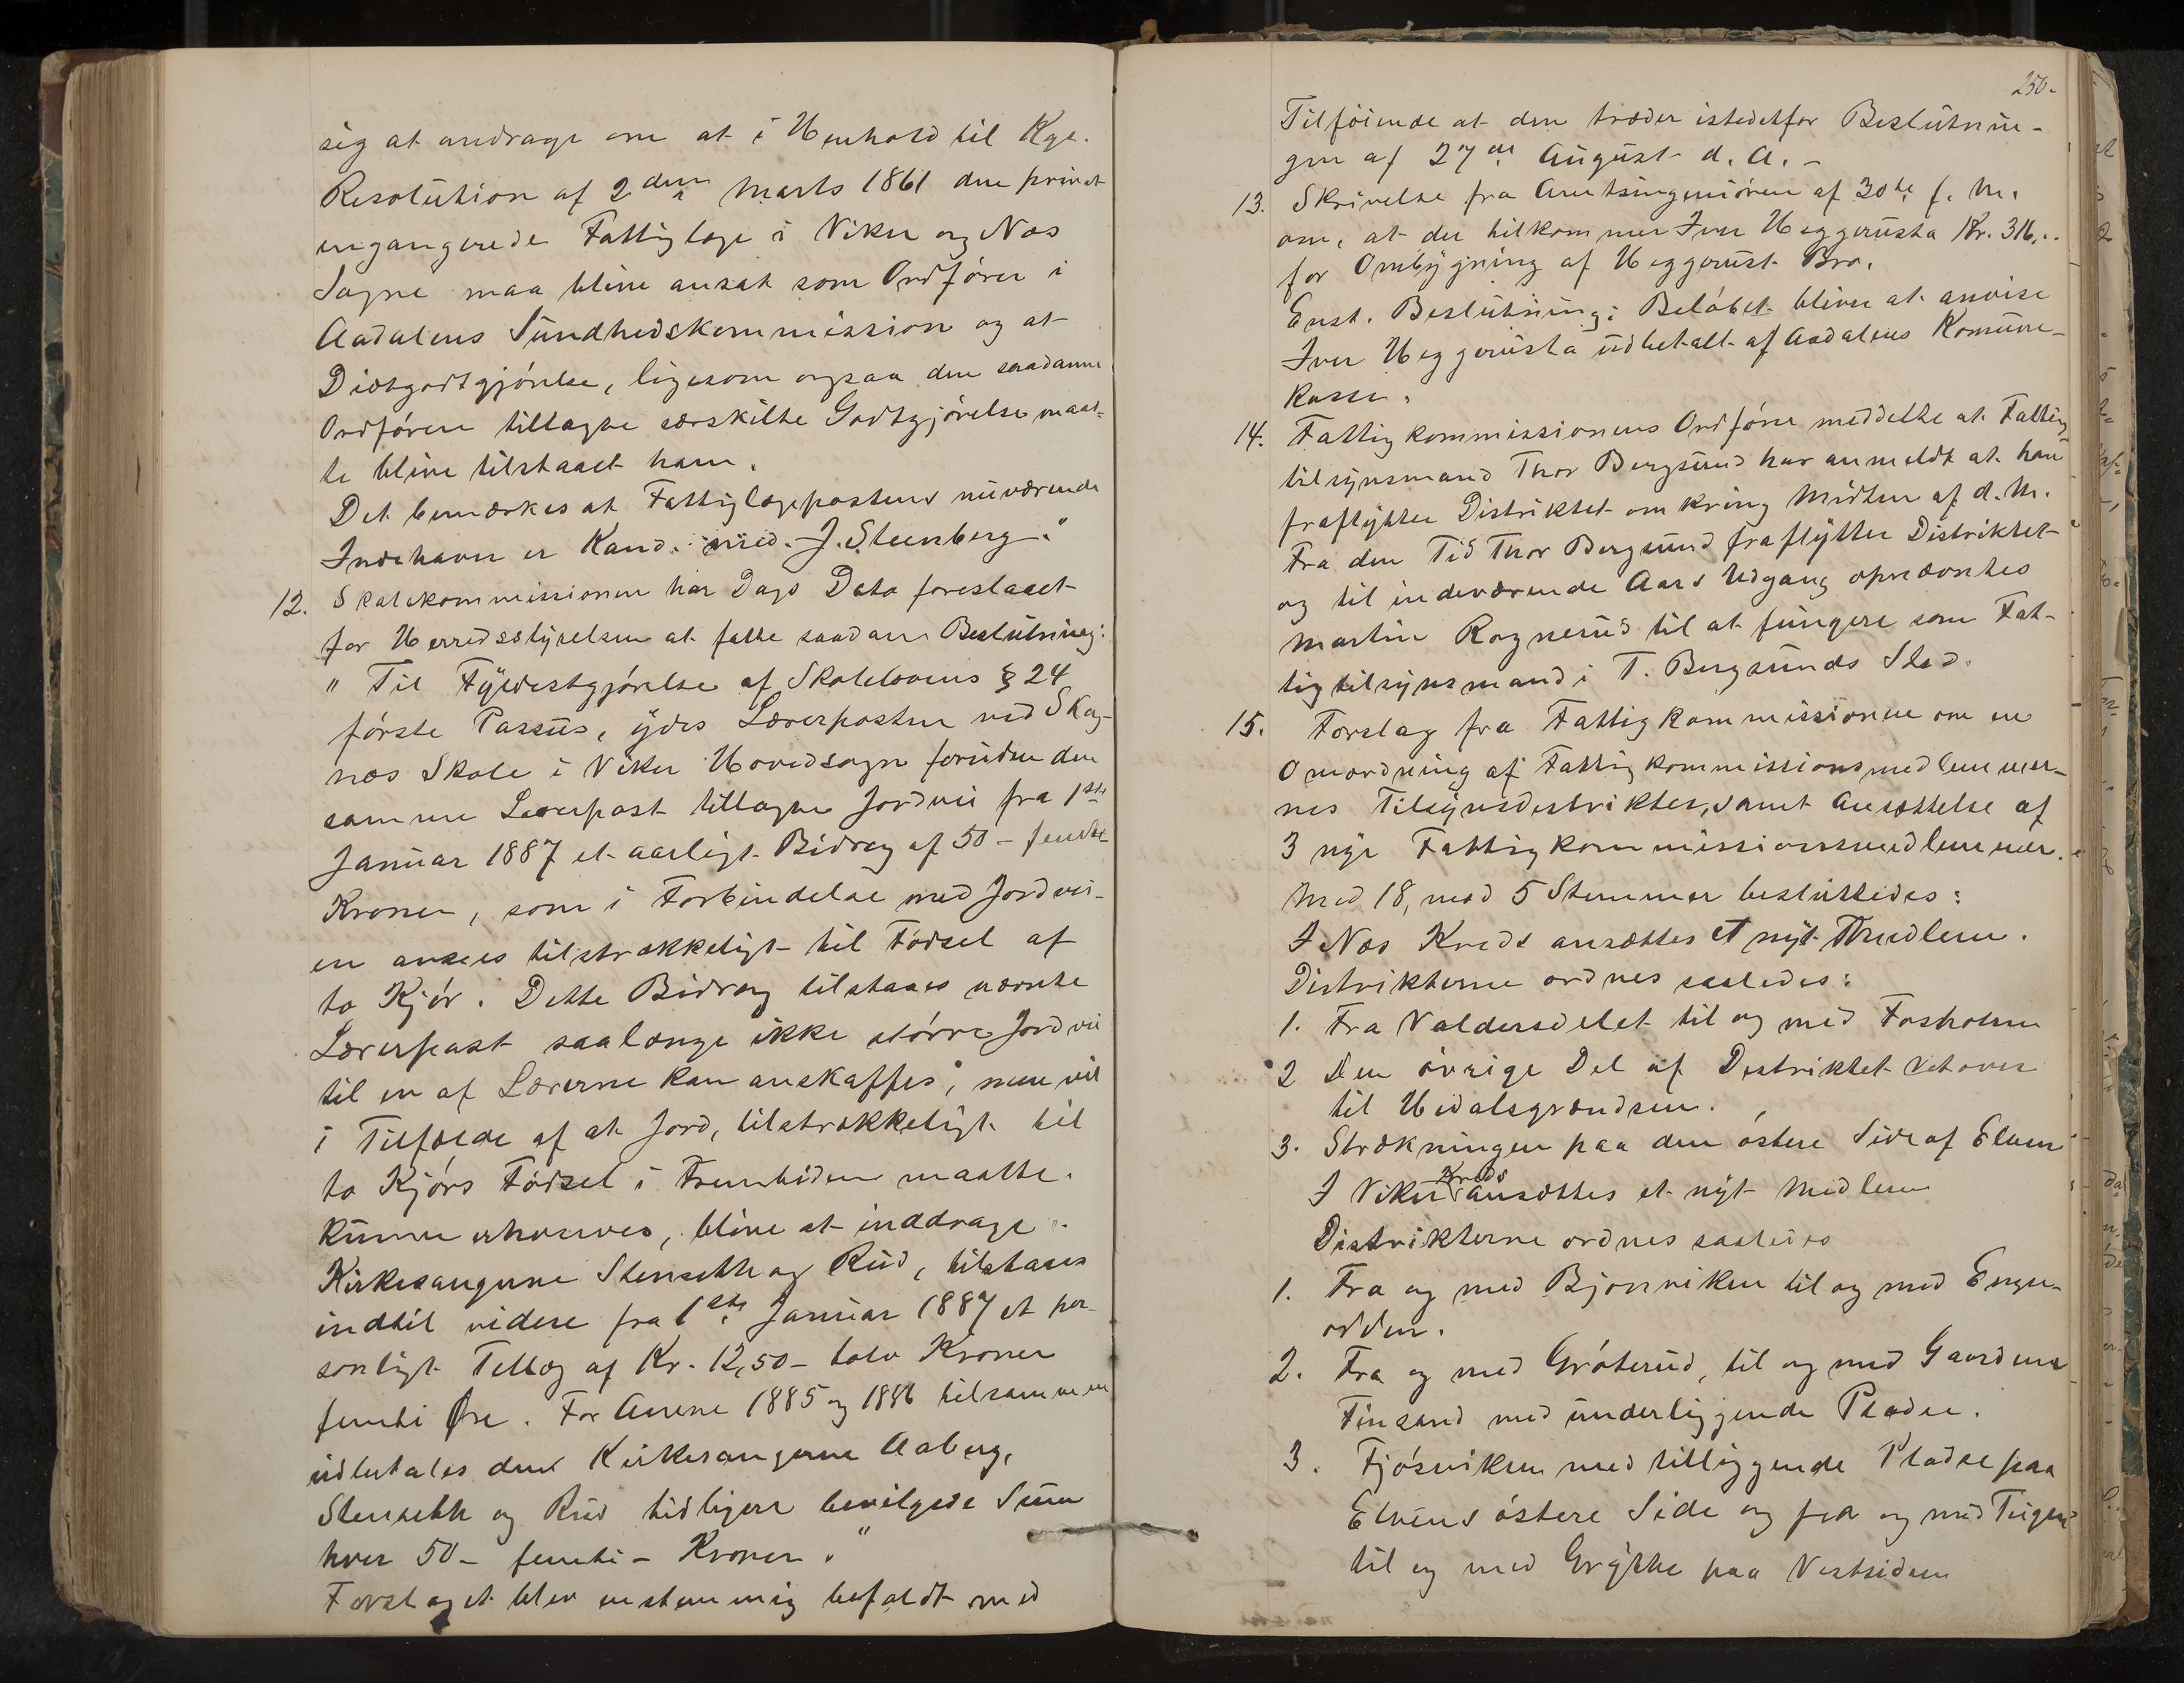 sig at andrage om at i Henhold til Kgl.
Resolution af 2den Marts 1861 den privat
engangerede Fattiglæge i Viker og Næs
Sogne maa blive ansat som Ordfører i
Aadalens Sundhedskommission og at
Diætgodtgjørelse, ligesom ogsaa den saadanne
Ordførere tillagte særskilte Godtgjørelse maat-
te blive tilstaaet ham.
Det bemærkes at Fattiglægepostens nuværende
Indehaver er Kand. med. J. Steenberg."
12. Skolekommissionen har Dags Dato foreslaaet
for Herredsstyrelsen at fatte saadan Beslutning:
" Til Fyldestgjørelse af Skolelovens § 24
første Passus, ydes Lærerposten ved Skag-
næs Skole i Viker Hovedsogn foruden den
samme Lærerpost tillagte Jordvei fra 1ste
Januar 1887 et aarligt Bidrag af 50 - femti
Kroner, som i Forbindelse med Jordvei-
en ansees tilstrækkeligt til Fødsel af
to Kjør. Dette Bidrag tilstaaes nævnte
Lærerpost saalænge ikke større Jordvei
til en af Lærerne kan anskaffes, men vil
i Tilfælde af at Jord, tilstrækkeligt til
to Kjørs Fødsel i Fremtiden maatte
kunne erhverves, blive at inddrage.
Kirkesangerne Stenseth og Rud, tilstaaes
indtil videre fra 1ste Januar 1887 et per-
sonligt Tillæg af Kr. 12,50 - tolv Kroner
femti Øre. For Aarene 1885 og 1886 tilsammen
udbetales dem Kirkesangerne Aaberg,
Stenseth og Rud tidligere bevilgede Sum
hver 50 - femti - Kroner."
Forslaget blev enstemmig bifaldt med
250.
Tilføiende at den træder istedetfor Beslutnin-
gen af 27de August d. A. -
13. Skrivelse fra Amtsingeniøren af 30te f. M.
om, at der tilkommer Iver Heggerusta Kr. 316,..
for Ombygning af Heggerust Bro.
Enst. Beslutning: Beløbet bliver at anvise
Iver Heggerusta udbetalt af Aadalens Komune-
kasse.
14. Fattigkommissionens Ordfører meddelte at Fattig
tilsynsmand Thor Bergsund har anmeldt at han
fraflytter Distriktet omkring Midten af d. M.
Fra den Tid Thor Bergsund fraflytter Distriktet
og til indeværende Aars Udgang opnævntes
Martin Ragnerud til at fungere som Fat-
tigtilsynsmand i T. Bergsunds Sted.
15. Forslag fra Fattigkommissionen om en
Omordning af Fattigkommissionsmedlemmer-
nes Tilsynsdistrikter, samt Ansættelse af
3 nye Fattigkommissionsmedlemmer.
Med 18, mod 5 Stemmer besluttedes:
I Næs Kreds ansættes et nyt Medlem.
Distrikterne ordnes saaledes:
1. Fra Valdersdelet til og med Fosholm
2 Den øvrige Del af Distriktet vestover
til Hedalsgrændsen.
3. Strækningen paa den østere Side af Elven
I Viker Kreds ansættes et nyt Medlem
Distrikterne ordnes saaledes
1. Fra og med Bjonviken til og med Enger-
odden.
2. Fra og med Grøterud, til og med Gaardene
Finsand med underliggende Pladse.
3. Fjøsviken med tilliggende Pladse paa
Elvens østere Side og fra og med Teigen
til og med Grytte paa Vestsiden